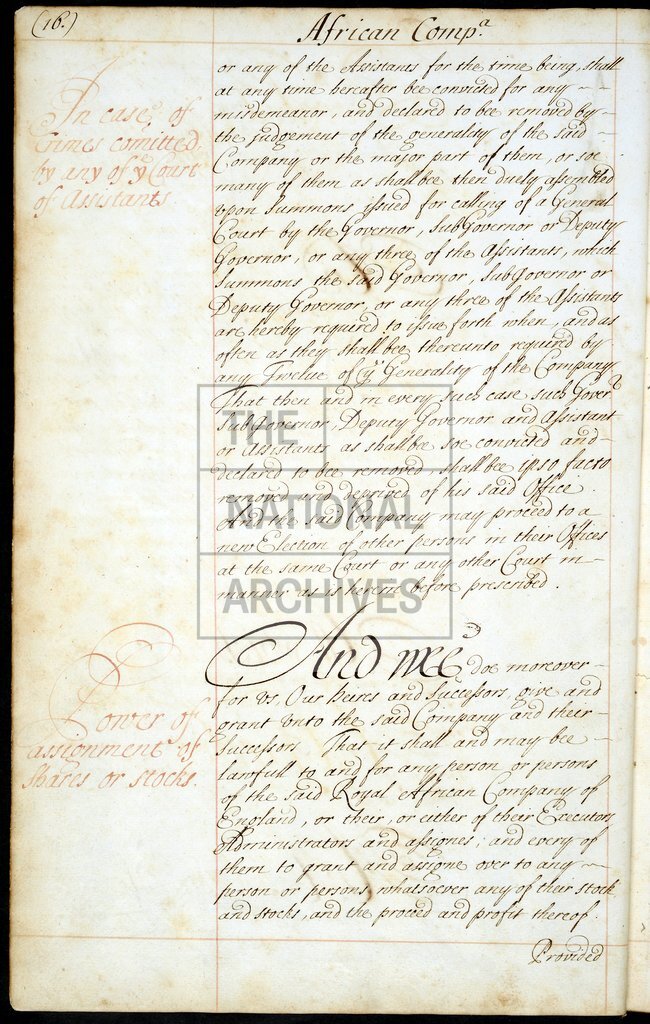 (16.)
African Comp.a
In case of
Crimes comitted,
by any of ye Court
of Assistants.
or any of the Assistants for the time being, shall
at any time hereafter bee convicted for any
misdemeanor, and declared to bee removed by
the judgement of the generality of the said
Company or the major part of them, or soe
many of them as shall bee then duely assembled
vpon Summons issued for calling of a General
Court by the Governor, SubGovernor or Deputy
Governor, or any three of the Assistants, which
Summons the said Governor, SubGovernor or
Deputy Governor, or any three of the Assistants
are hereby required to issue forth when, and as
often as they shall bee thereunto required by
any Twelve of ye Generality of the Company
That then and in every such case such Gover.r
SubGovernor, Deputy Governor and Assistant
or Assistants as shall bee soe convicted and
declared to bee removed, shall bee ipso facto
removed and deprived of his said Office.
And the said Company may proceed to a
new Election of other persons in their Offices
at the same Court or any other Court in
manner as is herein before prescribed.
Power of
assignment of
Shares or stocks.
And wee doe moreover
for vs, Our heires and Successors, give and
grant vnto the said Company and their
Successors That it shall and may bee
lawfull to and for any person or persons
of the said Royal African Company of
England, or their, or either of their Executors
Administrators and assignes; and every of
them to grant and assigne over to any
person or persons whatsoever any of their stock
and stocks, and the proceed and profit thereof.
Provided
THE
NATIONAL
ARCHIVES